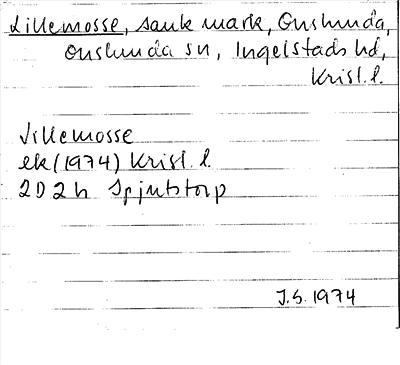 Lillemosse, sank mark, Onslunda,
Onslunda sn, Ingelstads hd,
Krisl. l.
Lillemosse
ek (1974) Krisl. l.
2D2h Spjutstorp
J.S. 1974